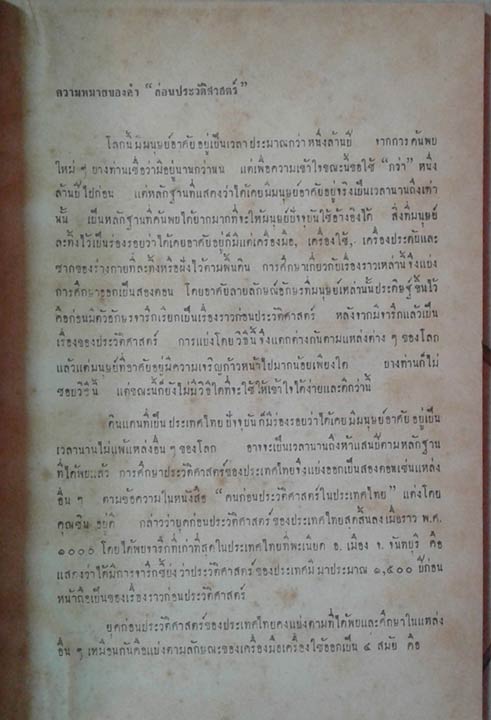 ความหมายของคำ “ก่อนประวัติศาสตร์”
โลกนี้มีมนุษย์อาศัยอยู่เป็นเวลาประมาณกว่าหนึ่งล้านปี จากการค้นพบ
ใหม่ ๆ บางท่านเชื่อว่ามีอยู่นานกว่านั้น แต่เพื่อความเข้าใจขณะนี้ขอใช้ “กว่า” หนึ่ง
ล้านปีไปก่อน แต่หลักฐานที่แสดงว่าได้เคยมีมนุษย์อาศัยอยู่จริงเป็นเวลานานถึงเท่า
นั้น เป็นหลักฐานที่ค้นพบได้ยากมากที่จะให้มนุษย์ปัจจุบันใช้อ้างอิงได้ สิ่งที่มนุษย์
ละทิ้งไว้เป็นร่องรอยว่าได้เคยอาศัยอยู่ก็มีแต่เครื่องมือ, เครื่องใช้, เครื่องประดับและ
ซากของร่างกายที่ละทิ้งหรือฝังไว้ตามพื้นดิน การศึกษาเกี่ยวกับเรื่องราวเหล่านี้จึงแบ่ง
การศึกษาออกเป็นสองตอน โดยอาศัยลายลักษณ์อักษรที่มนุษย์เหล่านั้นประดิษฐ์ขึ้นไว้
คือก่อนมีตัวอักษรจารึกเรียกเป็นเรื่องราวก่อนประวัติศาสตร์ หลังจากมีจารึกแล้วเป็น
เรื่องของประวัติศาสตร์ การแบ่งโดยวิธีนี้จึงแตกต่างกันตามแหล่งต่าง ๆ ของโลก
แล้วแต่มนุษย์ที่อาศัยอยู่มีความเจริญก้าวหน้าไปมากน้อยเพียงใด บางท่านก็ไม่
ชอบวิธีนี้ แต่ขณะนี้ก็ยังไม่มีวิธีใดที่จะใช้ให้เข้าใจได้ง่ายและดีกว่านี้
ดินแดนที่เป็นประเทศไทยปัจจุบันก็มีร่องรอยว่าได้เคยมีมนุษย์อาศัยอยู่เป็น
เวลานานไม่แพ้แหล่งอื่น ๆ ของโลก อาจจะเป็นเวลานานถึงห้าแสนปีตามหลักฐาน
ที่ได้พบแล้ว การศึกษาประวัติศาสตร์ของประเทศไทยจึงแบ่งออกเป็นสองตอนเช่นแหล่ง
อื่น ๆ ตามข้อความในหนังสือ “คนก่อนประวัติศาสตร์ในประเทศไทย” แต่งโดย
คุณชิน อยู่ดี กล่าวว่ายุคก่อนประวัติศาสตร์ของประเทศไทยสุดสิ้นลงเมื่อราว พ.ศ.
๑๐๐๐ โดยได้พบจารึกที่เก่าที่สุดในประเทศไทยที่พะเนียด อ. เมือง จ. จันทบุรี คือ
แสดงว่าได้มีการจารึกซึ่งบ่งว่าประวัติศาสตร์ของประเทศมีมาประมาณ ๑,๕๐๐ ปีก่อน
หน้าถือเป็นของเรื่องราวก่อนประวัติศาสตร์
ยุคก่อนประวัติศาสตร์ของประเทศไทยคงแบ่งตามที่ได้พบและศึกษาในแหล่ง
อื่น ๆ เหมือนกันคือแบ่งตามลักษณะของเครื่องมือเครื่องใช้ออกเป็น ๔ สมัย คือ